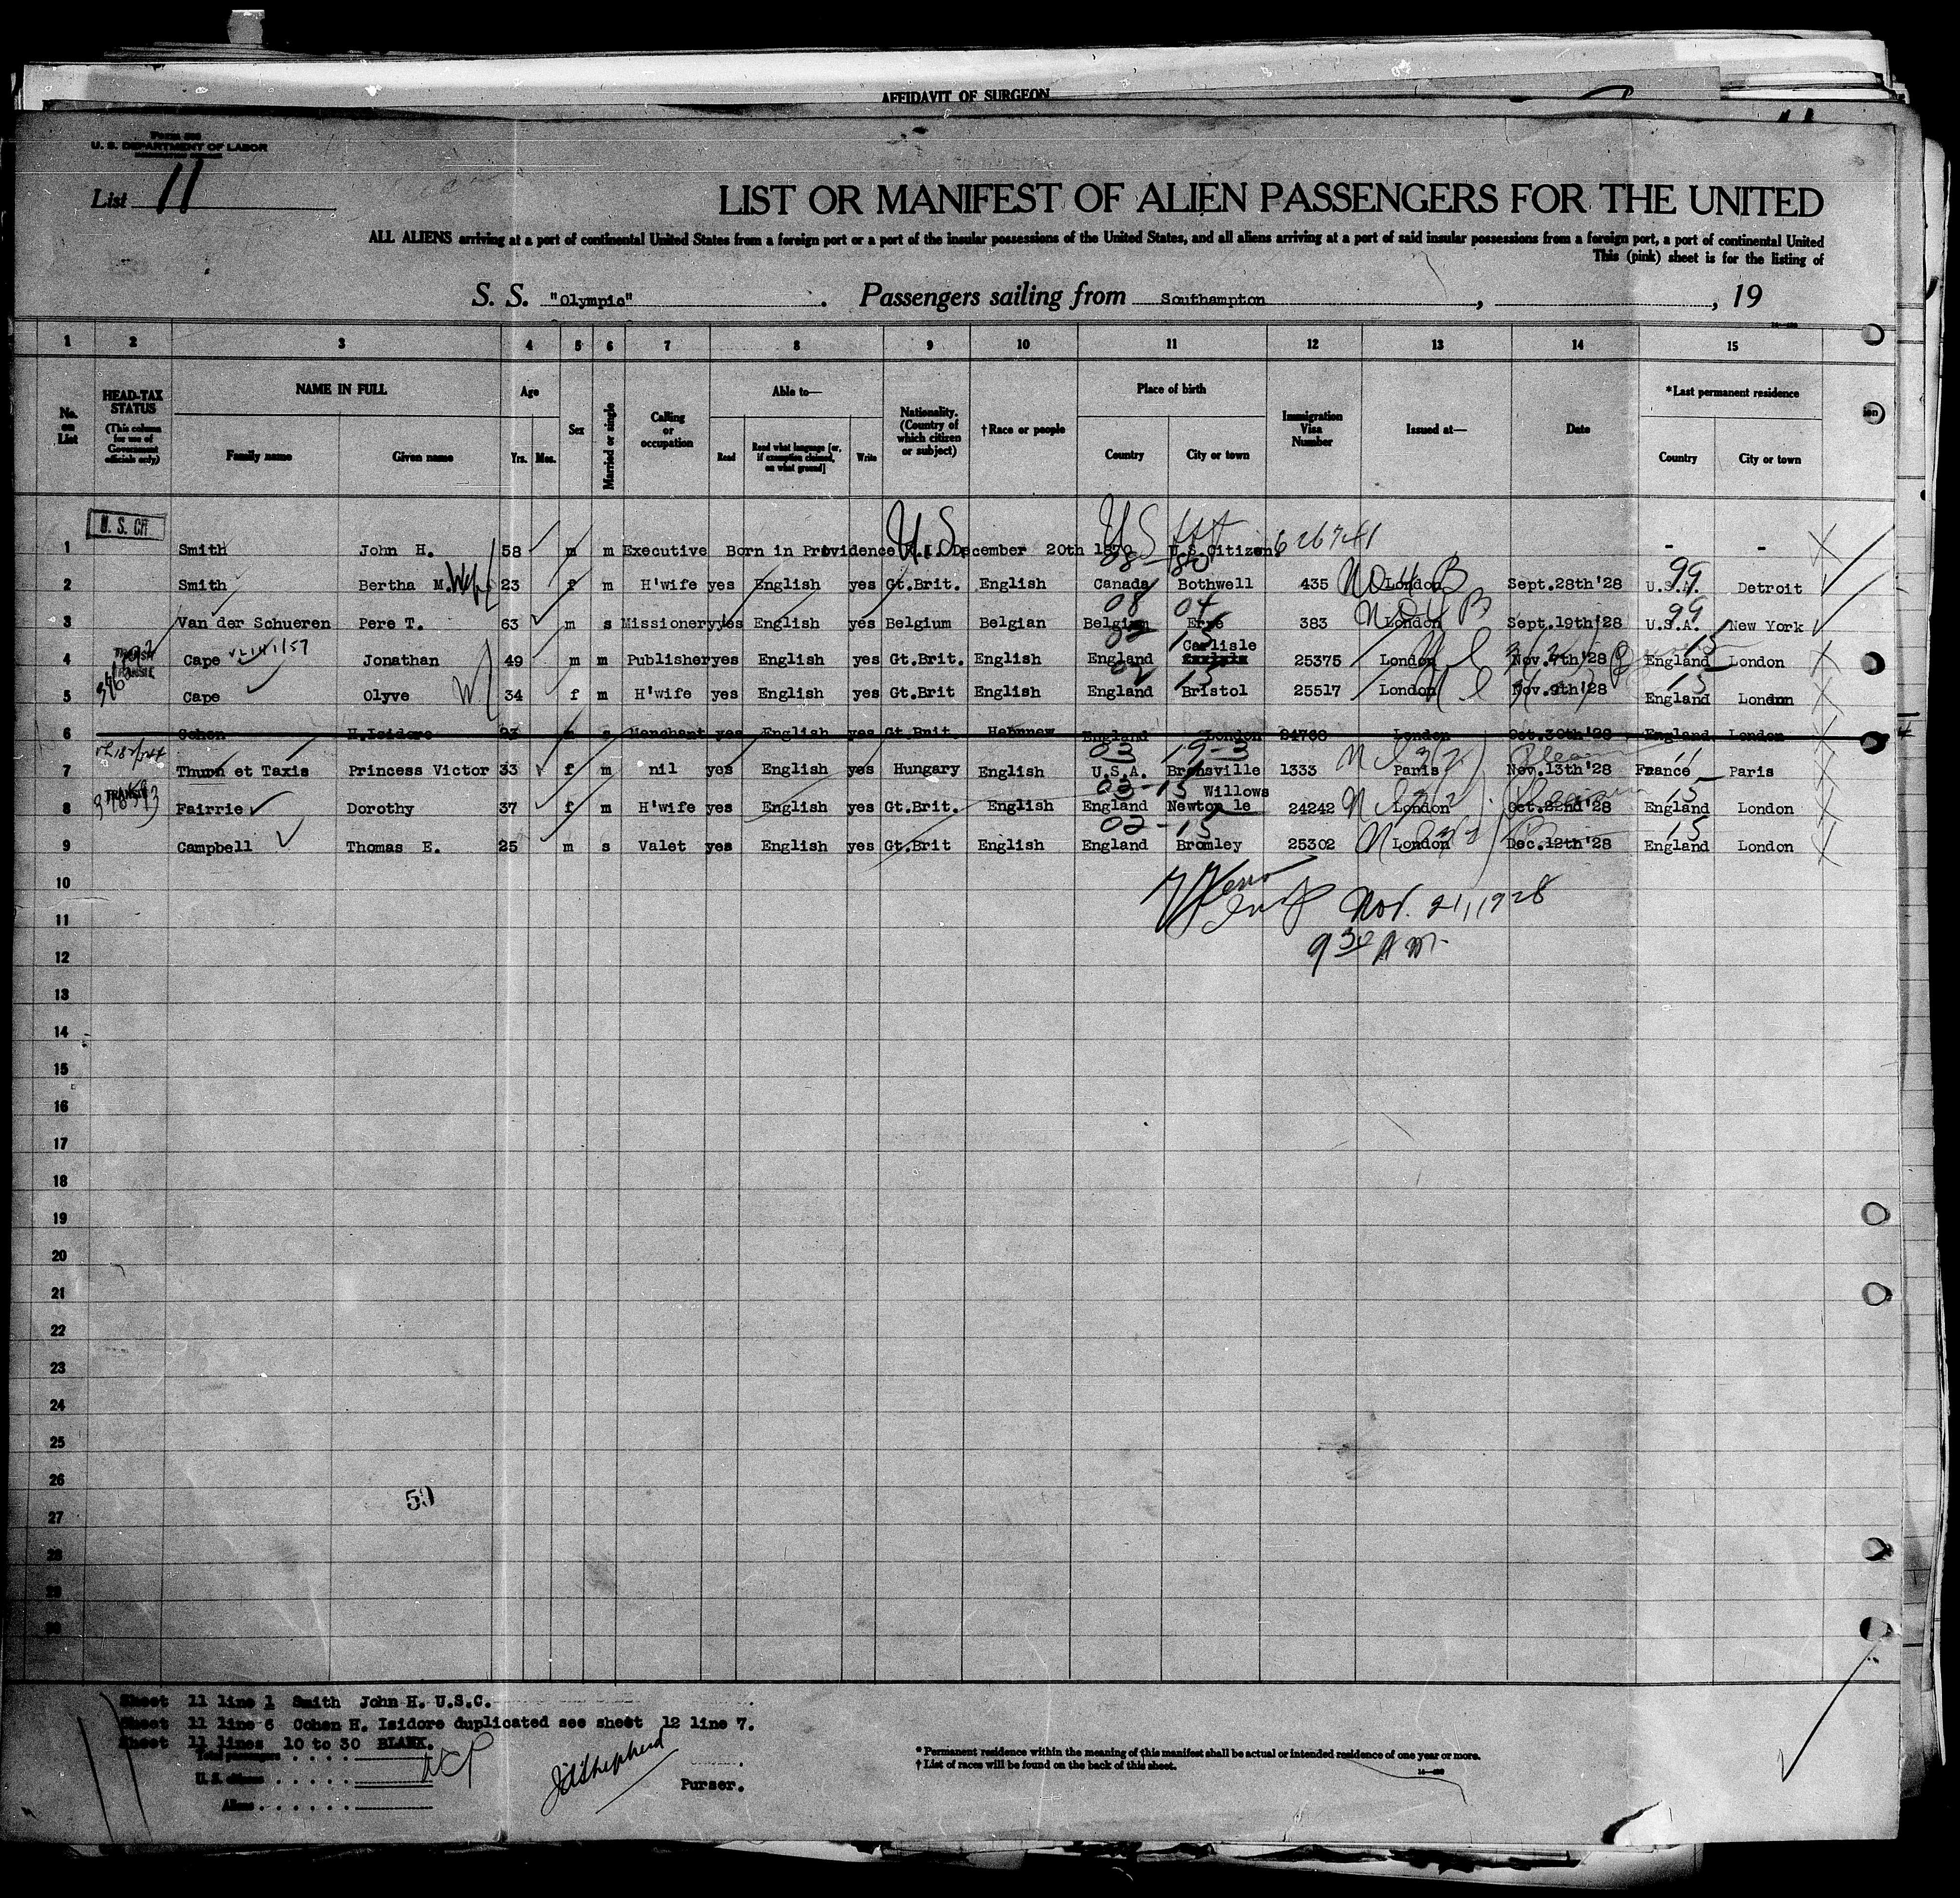 AFFIDAVIT OF SURGEON
U. S. DEPARTMENT OF LABOR
List 11
LIST OR MANIFEST OF ALIEN PASSENGERS FOR THE UNITED
ALL ALIENS arriving at a port of continental United States from a foreign port or a port of the insular possessions of the United States, and all aliens arriving at a port of said insular possessions from a foreign port, a port of continental United
This (pink) sheet is for the listing of
S. S. "Olympic" . Passengers sailing from Southampton , , 19
1 2 3 4 5 6 7 8 9 10 11 12 13 14 15
No. on List
HEAD-TAX STATUS (This column for use of Government officials only)
NAME IN FULL Family name Given name
Age Yrs. Mos.
Sex
Married or single
Calling or occupation
Able to— Read Read what language [or, if exemption claimed, on what ground] Write
Nationality. (Country of which citizen or subject)
†Race or people
Place of birth Country City or town
Immigration Visa Number
Issued at—
Date
*Last permanent residence Country City or town
U. S. CIT U.S. US 626741
1 Smith John H. 58 m m Executive Born in Providence R.I. December 20th 1870 U.S.Citizen. - -
2 Smith Bertha M. 23 f m H'wife yes English yes Gt.Brit. English Canada Bothwell 435 London Sept.28th'28 U.S.A. 99 Detroit
3 Van der Schueren Pere T. 63 m s Missionery yes English yes Belgium Belgian Belgium 383 London Sept.19th'28 U.S.A. 99 New York
Carlisle
4 Cape Jonathan 49 m m Publisher yes English yes Gt.Brit. English England 25375 London Nov.7th'28 England 15 London
5 Cape Olyve 34 f m H'wife yes English yes Gt.Brit English England Bristol 25517 London Nov.9th'28 England 15 London
6 Cohen H.Isidore 23 m s Merchant yes English yes Gt.Brit. Hebrew England London 24768 London Oct.30th'28 England London
7 Thurn et Taxis Princess Victor 33 f m nil yes English yes Hungary English U.S.A. Bronsville 1333 Paris Nov.13th'28 France Paris
TRANSIT 03-15 Willows
8 Fairrie Dorothy 37 f m H'wife yes English yes Gt.Brit. English England Newton le 24242 London Oct.22nd'28 England 15 London
02-15
9 Campbell Thomas E. 25 m s Valet yes English yes Gt.Brit English England Bromley 25302 London Dec.12th'28 England 15 London
10
Nov. 21, 1928
11
9 30 A M.
12
13
14
15
16
17
18
19
20
21
22
23
24
25
26
59
27
28
29
30
Sheet 11 line 1 Smith John H. U.S.C.
Sheet 11 line 6 Cohen H. Isidore duplicated see sheet 12 line 7.
Sheet 11 lines 10 to 30 BLANK.
Total passengers . . . .
U. S. citizens . . . . .
Aliens . . . . . .
Shepherd
Purser.
* Permanent residence within the meaning of this manifest shall be actual or intended residence of one year or more.
† List of races will be found on the back of this sheet.